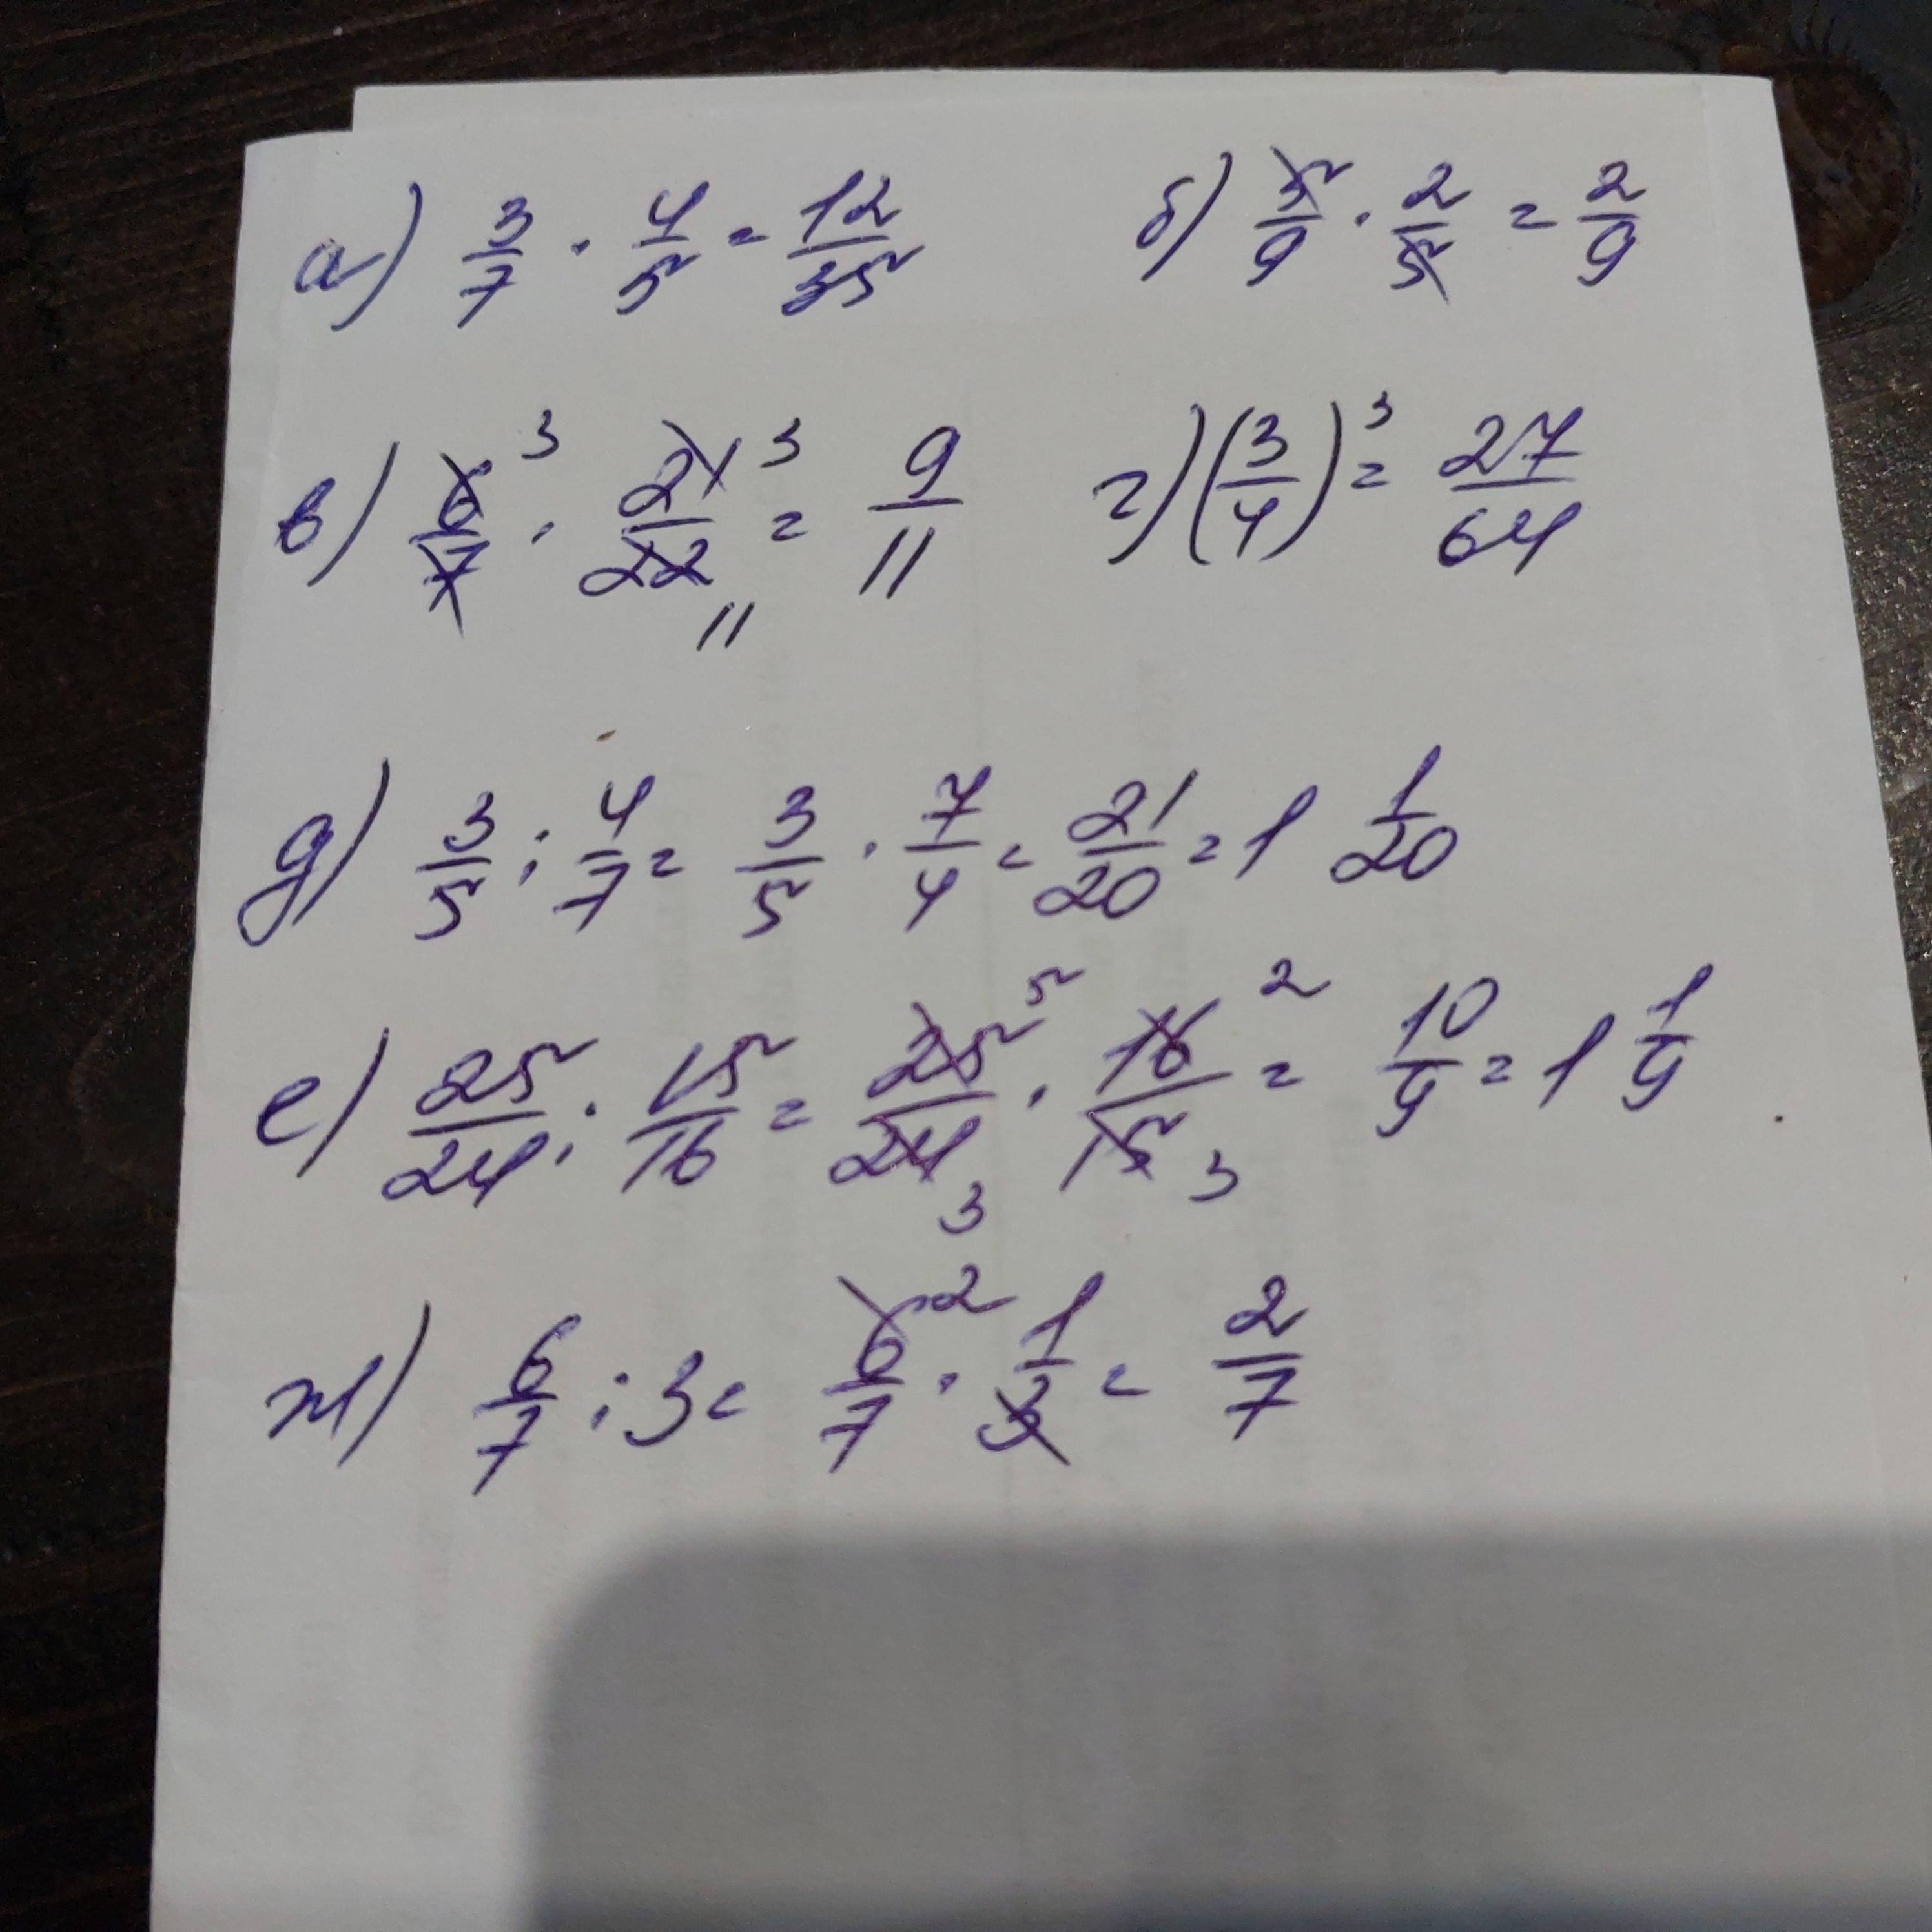 а) 3/7 · 4/5 = 12/35 б) 5/9 · 2/5 = 2/9
в) 6/7 3 · 21/22 3 11 = 9/11 г) (3/4)³ = 27/64
д) 3/5 : 4/7 = 3/5 · 7/4 = 21/20 = 1 1/20
е) 25/24 : 15/16 = 25/24 5 3 · 16/15 2 3 = 10/9 = 1 1/9
ж) 6/7 : 3 = 6/7 2 · 1/3 = 2/7